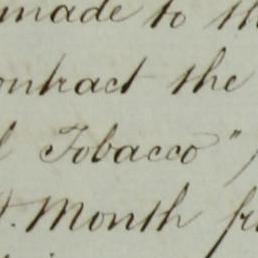 made to th
ontract the
Tobacco"
Month fr